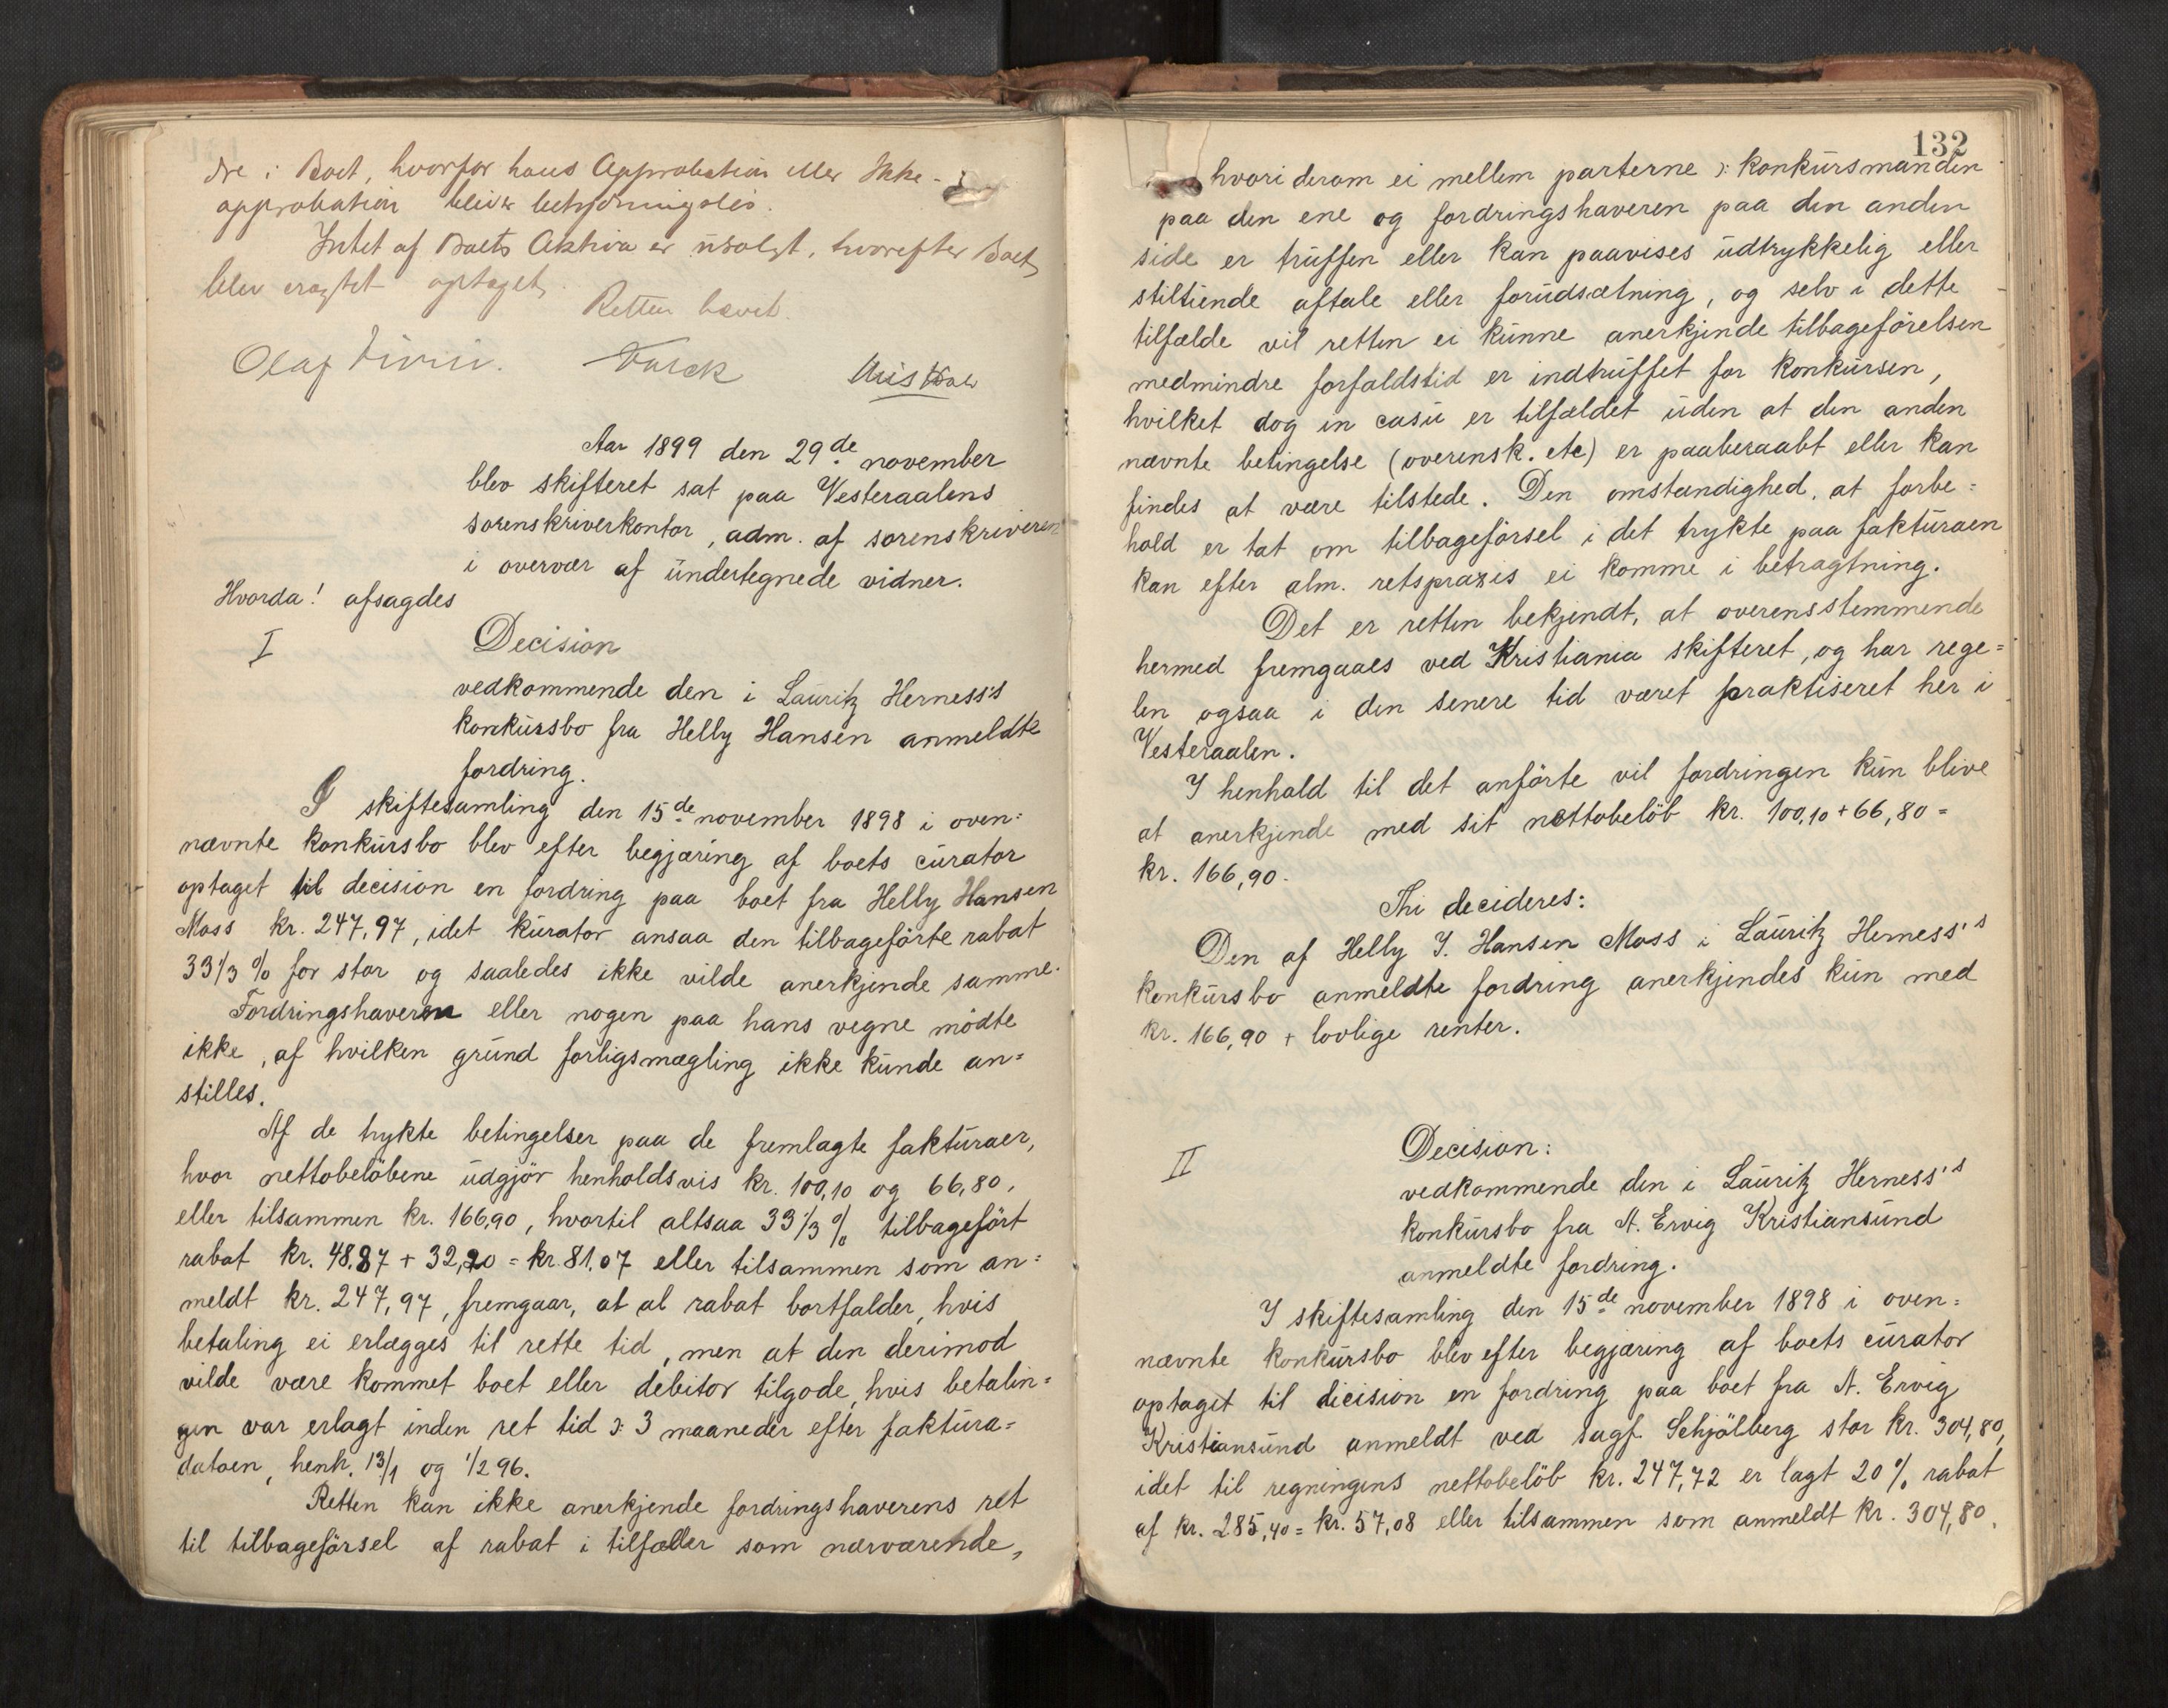 dre i Boet, hvorfor hans Approbation eller Ikke-
approbation bliver betydningsløs.
Intet af Boets Aktiva er usolgt, hvorefter Boet
blev eragtet optaget.
Retten hævet.
Olaf
Aar 1899 den 29de november
blev skifteret sat paa Vesteraalens
sorenskriverkontor, adm. af sorenskriveren
i overvær af undertegnede vidner.
Hvorda! afsagdes
I Decision
vedkommende den i Lauritz Herness's
konkursbo fra Helly Hansen anmeldte
fordring.
I skiftesamling den 15de november 1898 i oven=
nævnte konkursbo blev efter begjæring af boets curator
optaget til decision en fordring paa boet fra Helly Hansen
Moss kr. 247,97, idet kurator ansaa den tilbageførte rabat
33 1/3 % for stor og saaledes ikke vilde anerkjende samme.
Fordringshaveren eller nogen paa hans vegne mødte
ikke, af hvilken grund forligsmægling ikke kunde an=
stilles.
Af de trykte betingelser paa de fremlagte fakturaer,
hvor nettobeløbene udgjør henholdsvis kr. 100,10 og 66,80,
eller tilsammen kr. 166,90, hvortil altsaa 33 1/3 % tilbageført
rabat kr. 48,87 + 32,20 = kr. 81,07 eller tilsammen som an=
meldt kr. 247,97, fremgaar, at al rabat bortfalder, hvis
betaling ei erlægges til rette tid, men at den derimod
vilde være kommet boet eller debitor tilgode, hvis betalin=
gen var erlagt inden ret tid ɔ: 3 maaneder efter faktura=
datoen, henh. 13/1 og 1/2 96.
Retten kan ikke anerkjende fordringshaverens ret
til tilbageførsel af rabat i tilfæller som nærværende,
132
hvori derom ei mellem parterne ɔ: konkursmanden
paa den ene og fordringshaveren paa den anden
side er truffen eller kan paavises udtrykkelig eller
stiltiende aftale eller forudsætning, og selv i dette
tilfælde vil retten ei kunne anerkjende tilbageførelsen
medmindre forfaldstid er indtruffet før konkursen,
hvilket dog in casu er tilfældet uden at den anden
nævnte betingelse (overensk. etc) er paaberaabt eller kan
findes at være tilstede. Den omstændighed, at forbe=
hold er tat om tilbageførsel i det trykte paa fakturaen
kan efter alm. retspraxis ei komme i betragtning.
Det er retten bekjendt, at overensstemmende
hermed fremgaaes ved Kristiania skifteret, og har rege=
len ogsaa i den senere tid været praktiseret her i
Vesteraalen.
I henhold til det anførte vil fordringen kun blive
at anerkjende med sit nettobeløb kr. 100,10 + 66,80 =
kr. 166,90.
Thi decideres:
Den af Helly J. Hansen Moss i Lauritz Herness's
konkursbo anmeldte fordring anerkjendes kun med
kr. 166,90 + lovlige renter.
II Decision:
vedkommende den i Lauritz Herness's
konkursbo fra N. Ervig Kristiansund
anmeldte fordring.
I skiftesamling den 15de november 1898 i oven=
nævnte konkursbo blev efter begjæring af boets curator
optaget til dicision en fordring paa boet fra N. Ervig
Kristiansund anmeldt ved sagf. Schjølberg stor kr. 304,80,
idet til regningens nettobeløb kr. 247,72 er lagt 20 % rabat
af kr. 285,40 = kr. 57,08 eller tilsammen som anmeldt kr. 304,80.